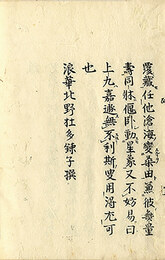 覆藏任他滄海變桑田蕙彼無量
壽同牀偃卧動星象又不妨易曰
上九嘉遯無不利斯叟用得尤可
也
浪華北野杜多錬子撰